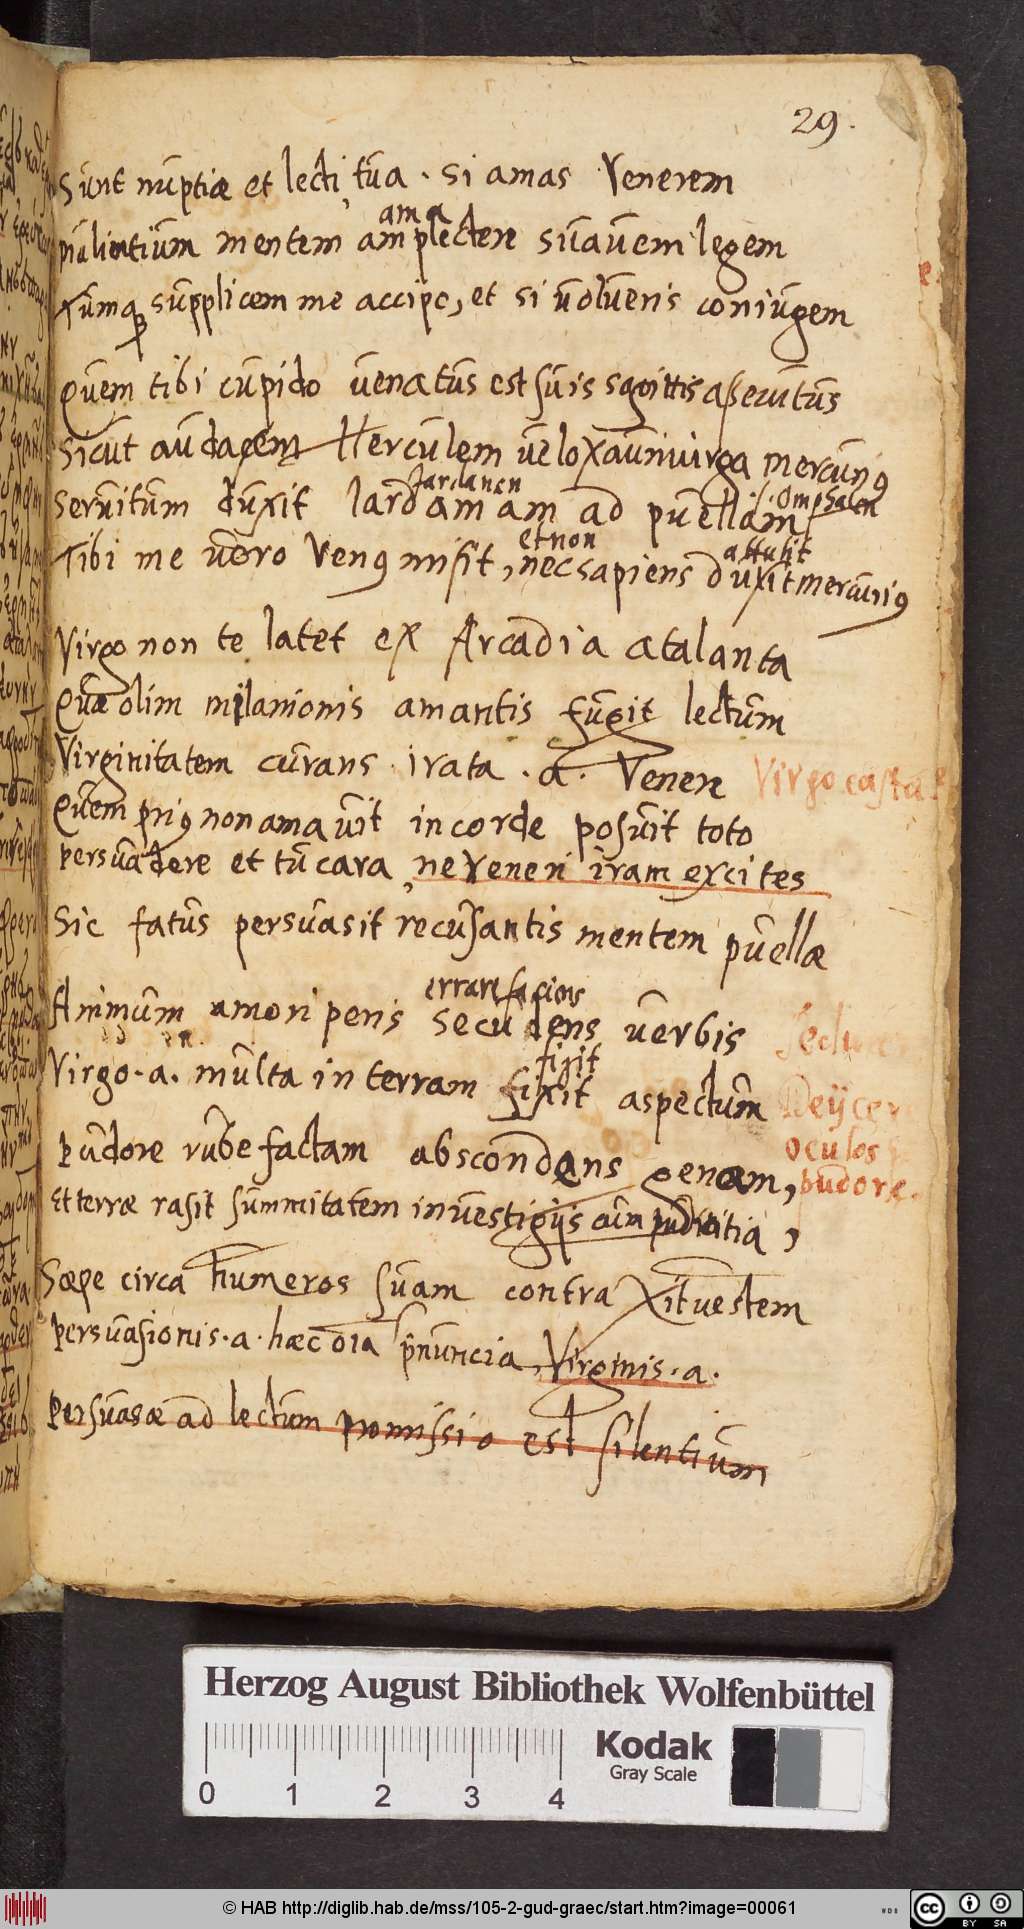 29.
Sunt nuptiæ et lecti, tua . si amas Venerem
ama
mentem amplectere suavem legem
supplicem me accipe, et si volueris coniugem
Quem tibi cupido venatus est suis sagittis
Sicut audacem Herculem velox mercurius
Jardanen
.i. Omphalen
Servitum duxit Iardaniam ad puellam
et non
attulit
Tibi me vero Venus misit, nec sapiens duxit mercurius
Virgo non te latet ex Arcadia atalanta
Quæ olim milanionis amantis fugit lectum
Virginitatem curans . irata . a . Venere
Virgo casta
Quem prius non amavit in corde posuit toto
persuadere et tu cara, ne Veneri iram excites
Sic fatus persuasit recusantis mentem puellæ
errare faciens
Animum amoris seducens verbis
fixit
Virgo . a . multa in terram fixit aspectum
Deijcere
oculos
pudore.
pudore rube factam abscondens genam,
Et terræ rasit summitatem in vestigijs cum pudicitia,
Sæpe circa humeros suam contraxit vestem
persuasionis . a . hæc oia pnuncia, Virginis . a .
persuasæ ad lectum promissio est silentium
Herzog August Bibliothek Wolfenbüttel
0 1 2 3 4
Kodak
Gray Scale
© HAB http://diglib.hab.de/mss/105-2-gud-graec/start.htm?image=00061
WDB
cc BY SA